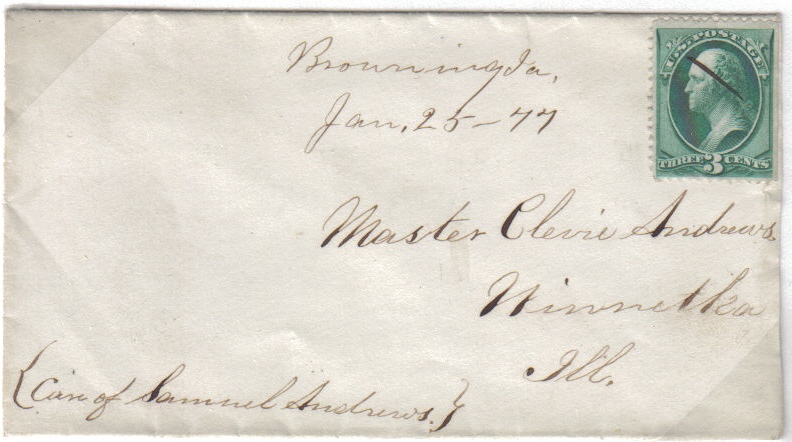 Browning Ia,
Jan, 25-77
U.S. POSTAGE
THREE 3 CENTS
Master Clevie Andrews
Winnetka
Ill.
{Care of Samuel Andrews.}